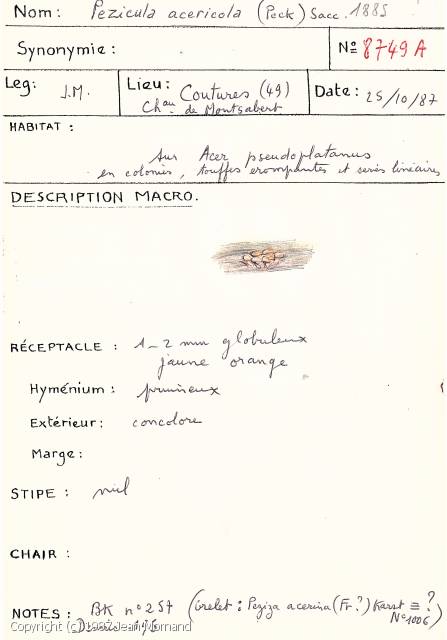 Nom: Pezicula acericola (Peck) Sacc. 1885
Synonymie:
No 8749 A
Leg: J.M.
Lieu: Coutures (49)
Chau de Montsabert
Date: 25/10/87
HABITAT :
sur Acer pseudoplatanus
en colonies, touffes erompantes et series linéaires
DESCRIPTION MACRO.
RÉCEPTACLE : 1_2 mm globuleux
jaune orange
Hyménium : pruineux
Extérieur: concolore
Marge:
STIPE : nul
CHAIR :
NOTES : BK n° 257 (Grelet : Peziza acerina (Fr?) Karst ≡ ?
N° 1006)
Dennis 196
Copyright (c) 1997 Jean Mornand